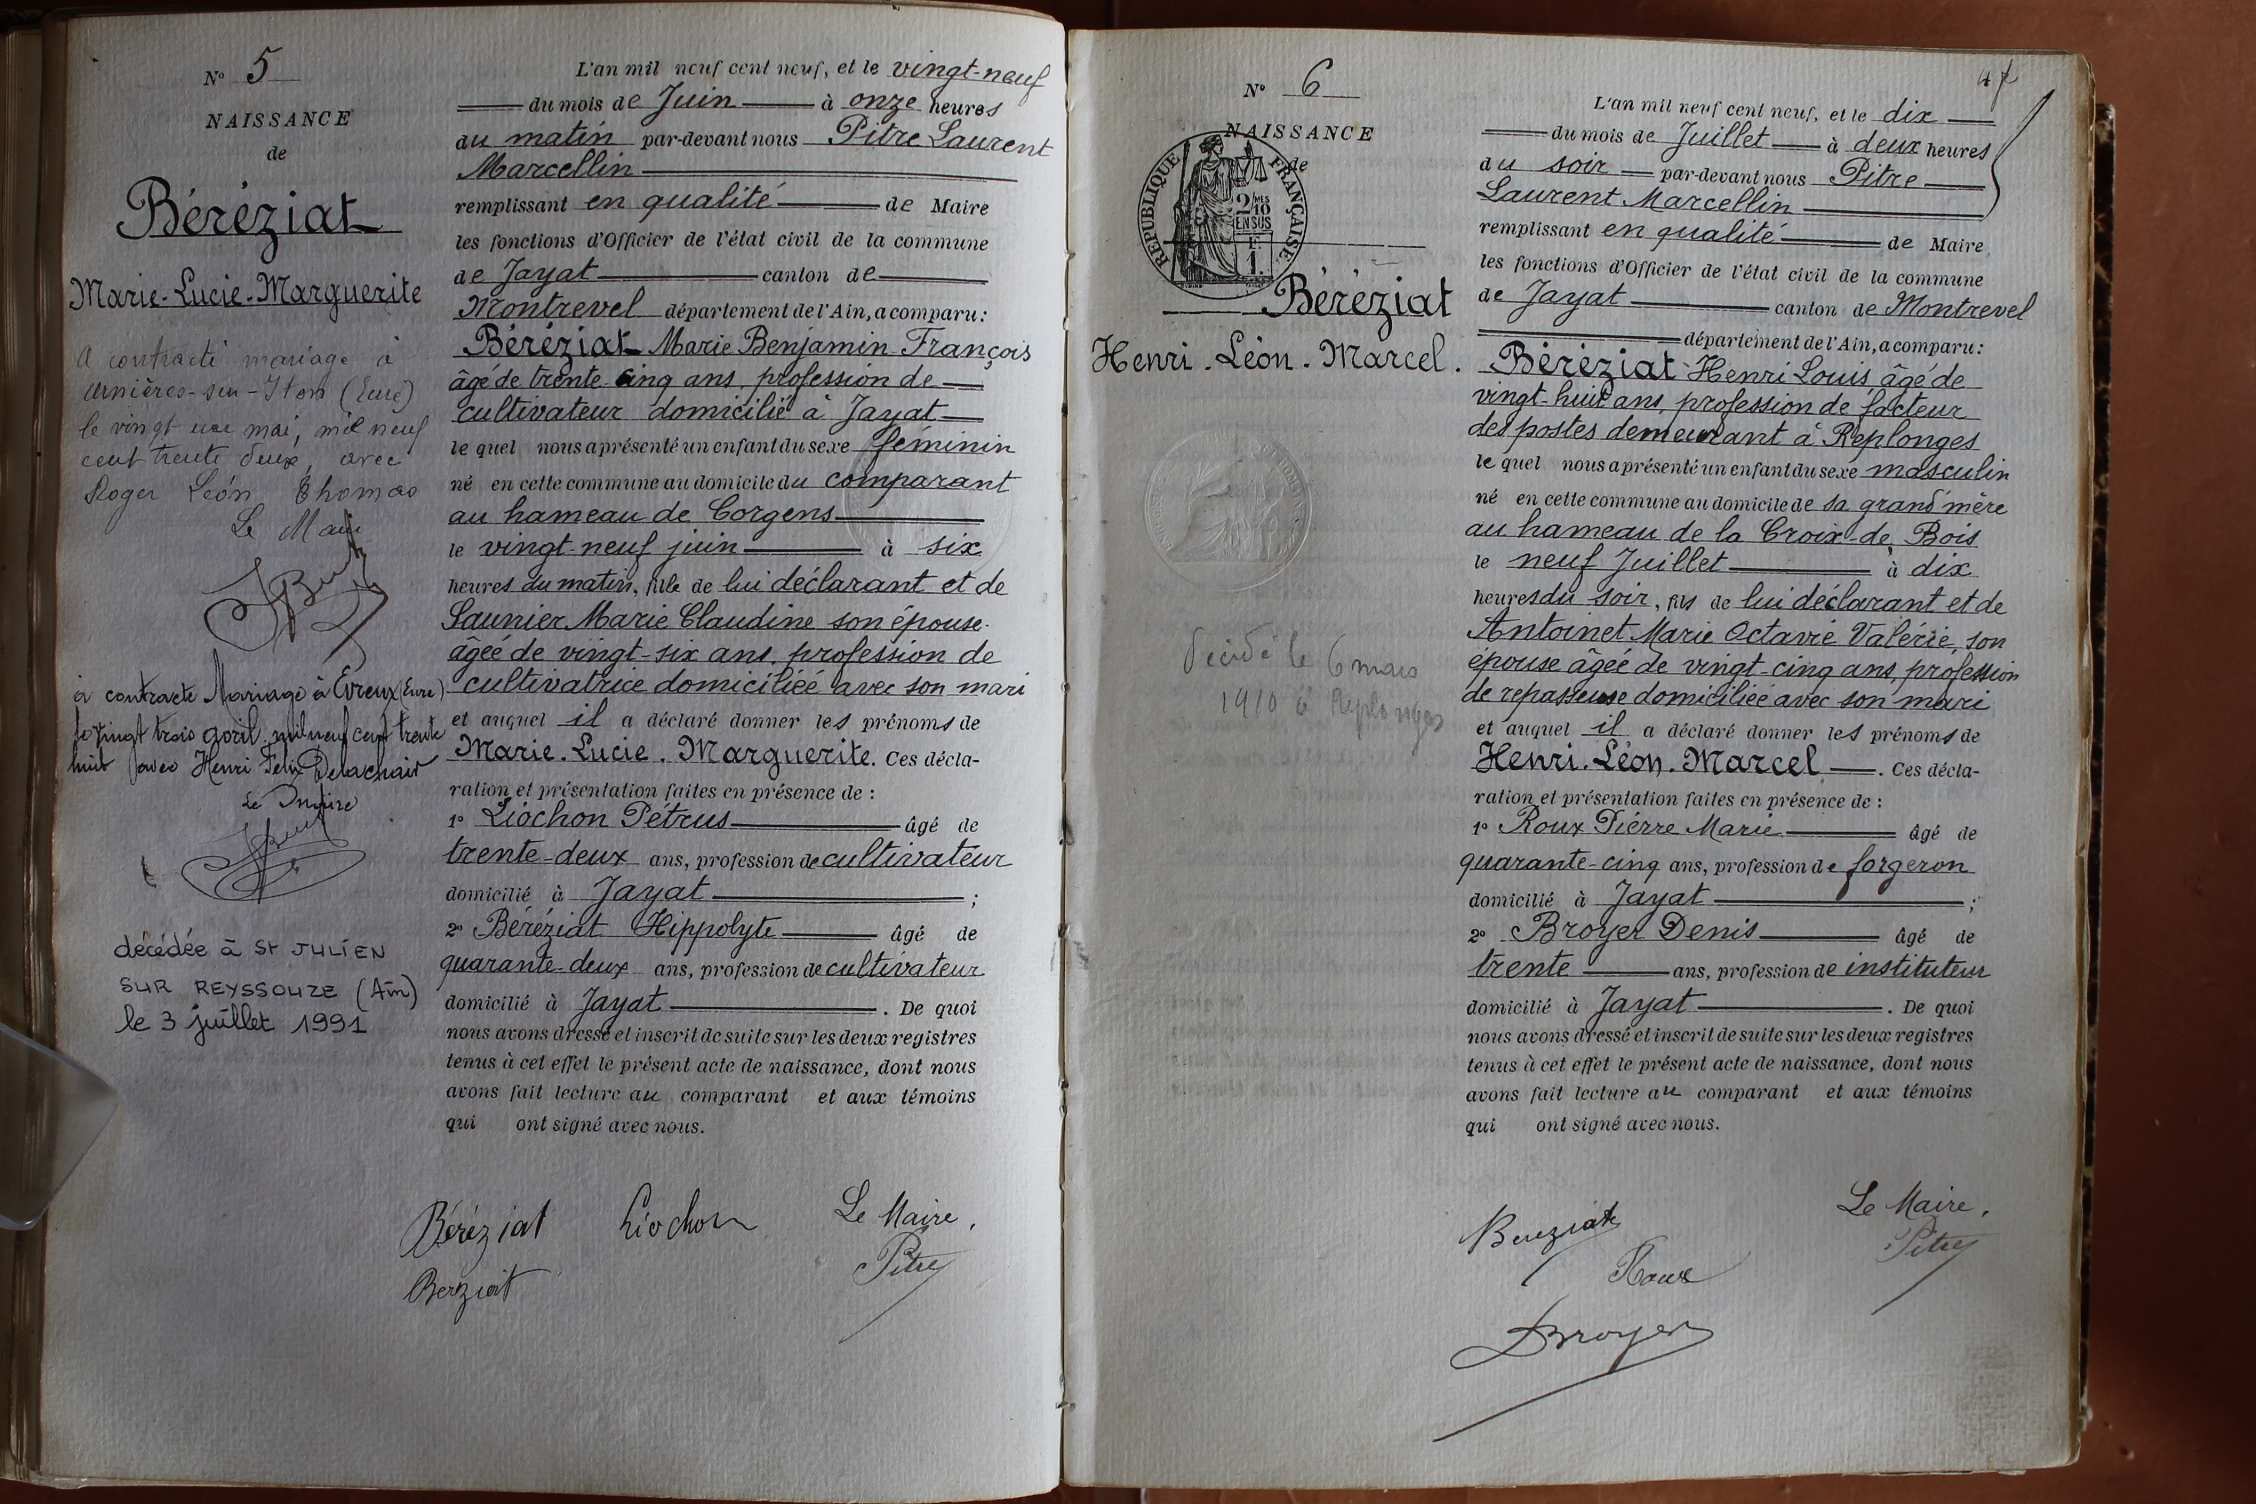 Nº 5
NAISSANCE
de
Béréziat
Marie-Lucie-Marguerite
A contracté mariage à
Arnières-sur-Iton (Eure)
le vingt une mai, mil neuf
cent trente deux, avec
Roger Léon Thomas
Le Maire
à contracté Mariage à Evreux (Eure)
le vingt trois avril mil neuf cent trente
huit avec Henri Felix Delachair
Le Maire
décédée à St JULIEN
SUR REYSSOUZE (Ain)
le 3 juillet 1991
L'an mil neuf cent neuf, et le vingt-neuf
du mois de Juin à onze heures
du matin par-devant nous Pitre Laurent
Marcellin
remplissant en qualité de Maire
les fonctions d'Officier de l'état civil de la commune
de Jayat canton de
Montrevel département de l'Ain, a comparu:
Béréziat Marie Benjamin François
âgé de trente cinq ans, profession de
cultivateur domicilié à Jayat
le quel nous a présenté un enfant du sexe féminin
né en cette commune au domicile du comparant
au hameau de Corgens
le vingt-neuf juin à six
heures du matin, fille de lui déclarant et de
Saunier Marie Claudine son épouse
âgée de vingt-six ans, profession de
cultivatrice domiciliée avec son mari
et auquel il a déclaré donner les prénoms de
Marie. Lucie. Marguerite. Ces décla-
ration et présentation faites en présence de :
1º Liochon Pétrus âgé de
trente-deux ans, profession de cultivateur
domicilié à Jayat ;
2º Béréziat Hippolyte âgé de
quarante-deux ans, profession de cultivateur
domicilié à Jayat . De quoi
nous avons dressé et inscrit de suite sur les deux registres
tenus à cet effet le présent acte de naissance, dont nous
avons fait lecture au comparant et aux témoins
qui ont signé avec nous.
Béréziat Liochon Le Maire,
Bereziat Pitre
47
Nº 6
NAISSANCE
de
RÉPUBLIQUE FRANÇAISE
2/10 MES
EN SUS
F.
1.
Béréziat
Henri. Léon. Marcel.
Décédé le 6 mars
1910 à Replonges
L'an mil neuf cent neuf, et le dix
du mois de Juillet à deux heures
du soir par-devant nous Pitre
Laurent Marcellin
remplissant en qualité de Maire
les fonctions d'Officier de l'état civil de la commune
de Jayat canton de Montrevel
département de l'Ain, a comparu:
Béréziat Henri Louis, âgé de
vingt-huit ans, profession de facteur
des postes demeurant à Replonges
le quel nous a présenté un enfant du sexe masculin
né en cette commune au domicile de sa grand'mère
au hameau de la Croix-de-Bois
le neuf Juillet à dix
heures du soir, fils de lui déclarant et de
Antoinet Marie Octavie Valérie, son
épouse âgée de vingt-cinq ans, profession
de repasseuse domiciliée avec son mari
et auquel il a déclaré donner les prénoms de
Henri. Léon. Marcel . Ces décla-
ration et présentation faites en présence de :
1º Roux Pierre Marie âgé de
quarante-cinq ans, profession de forgeron
domicilié à Jayat ;
2º Broyer Denis âgé de
trente ans, profession de instituteur
domicilié à Jayat . De quoi
nous avons dressé et inscrit de suite sur les deux registres
tenus à cet effet le présent acte de naissance, dont nous
avons fait lecture au comparant et aux témoins
qui ont signé avec nous.
Bereziat Le Maire,
Roux Pitre
DBroyer